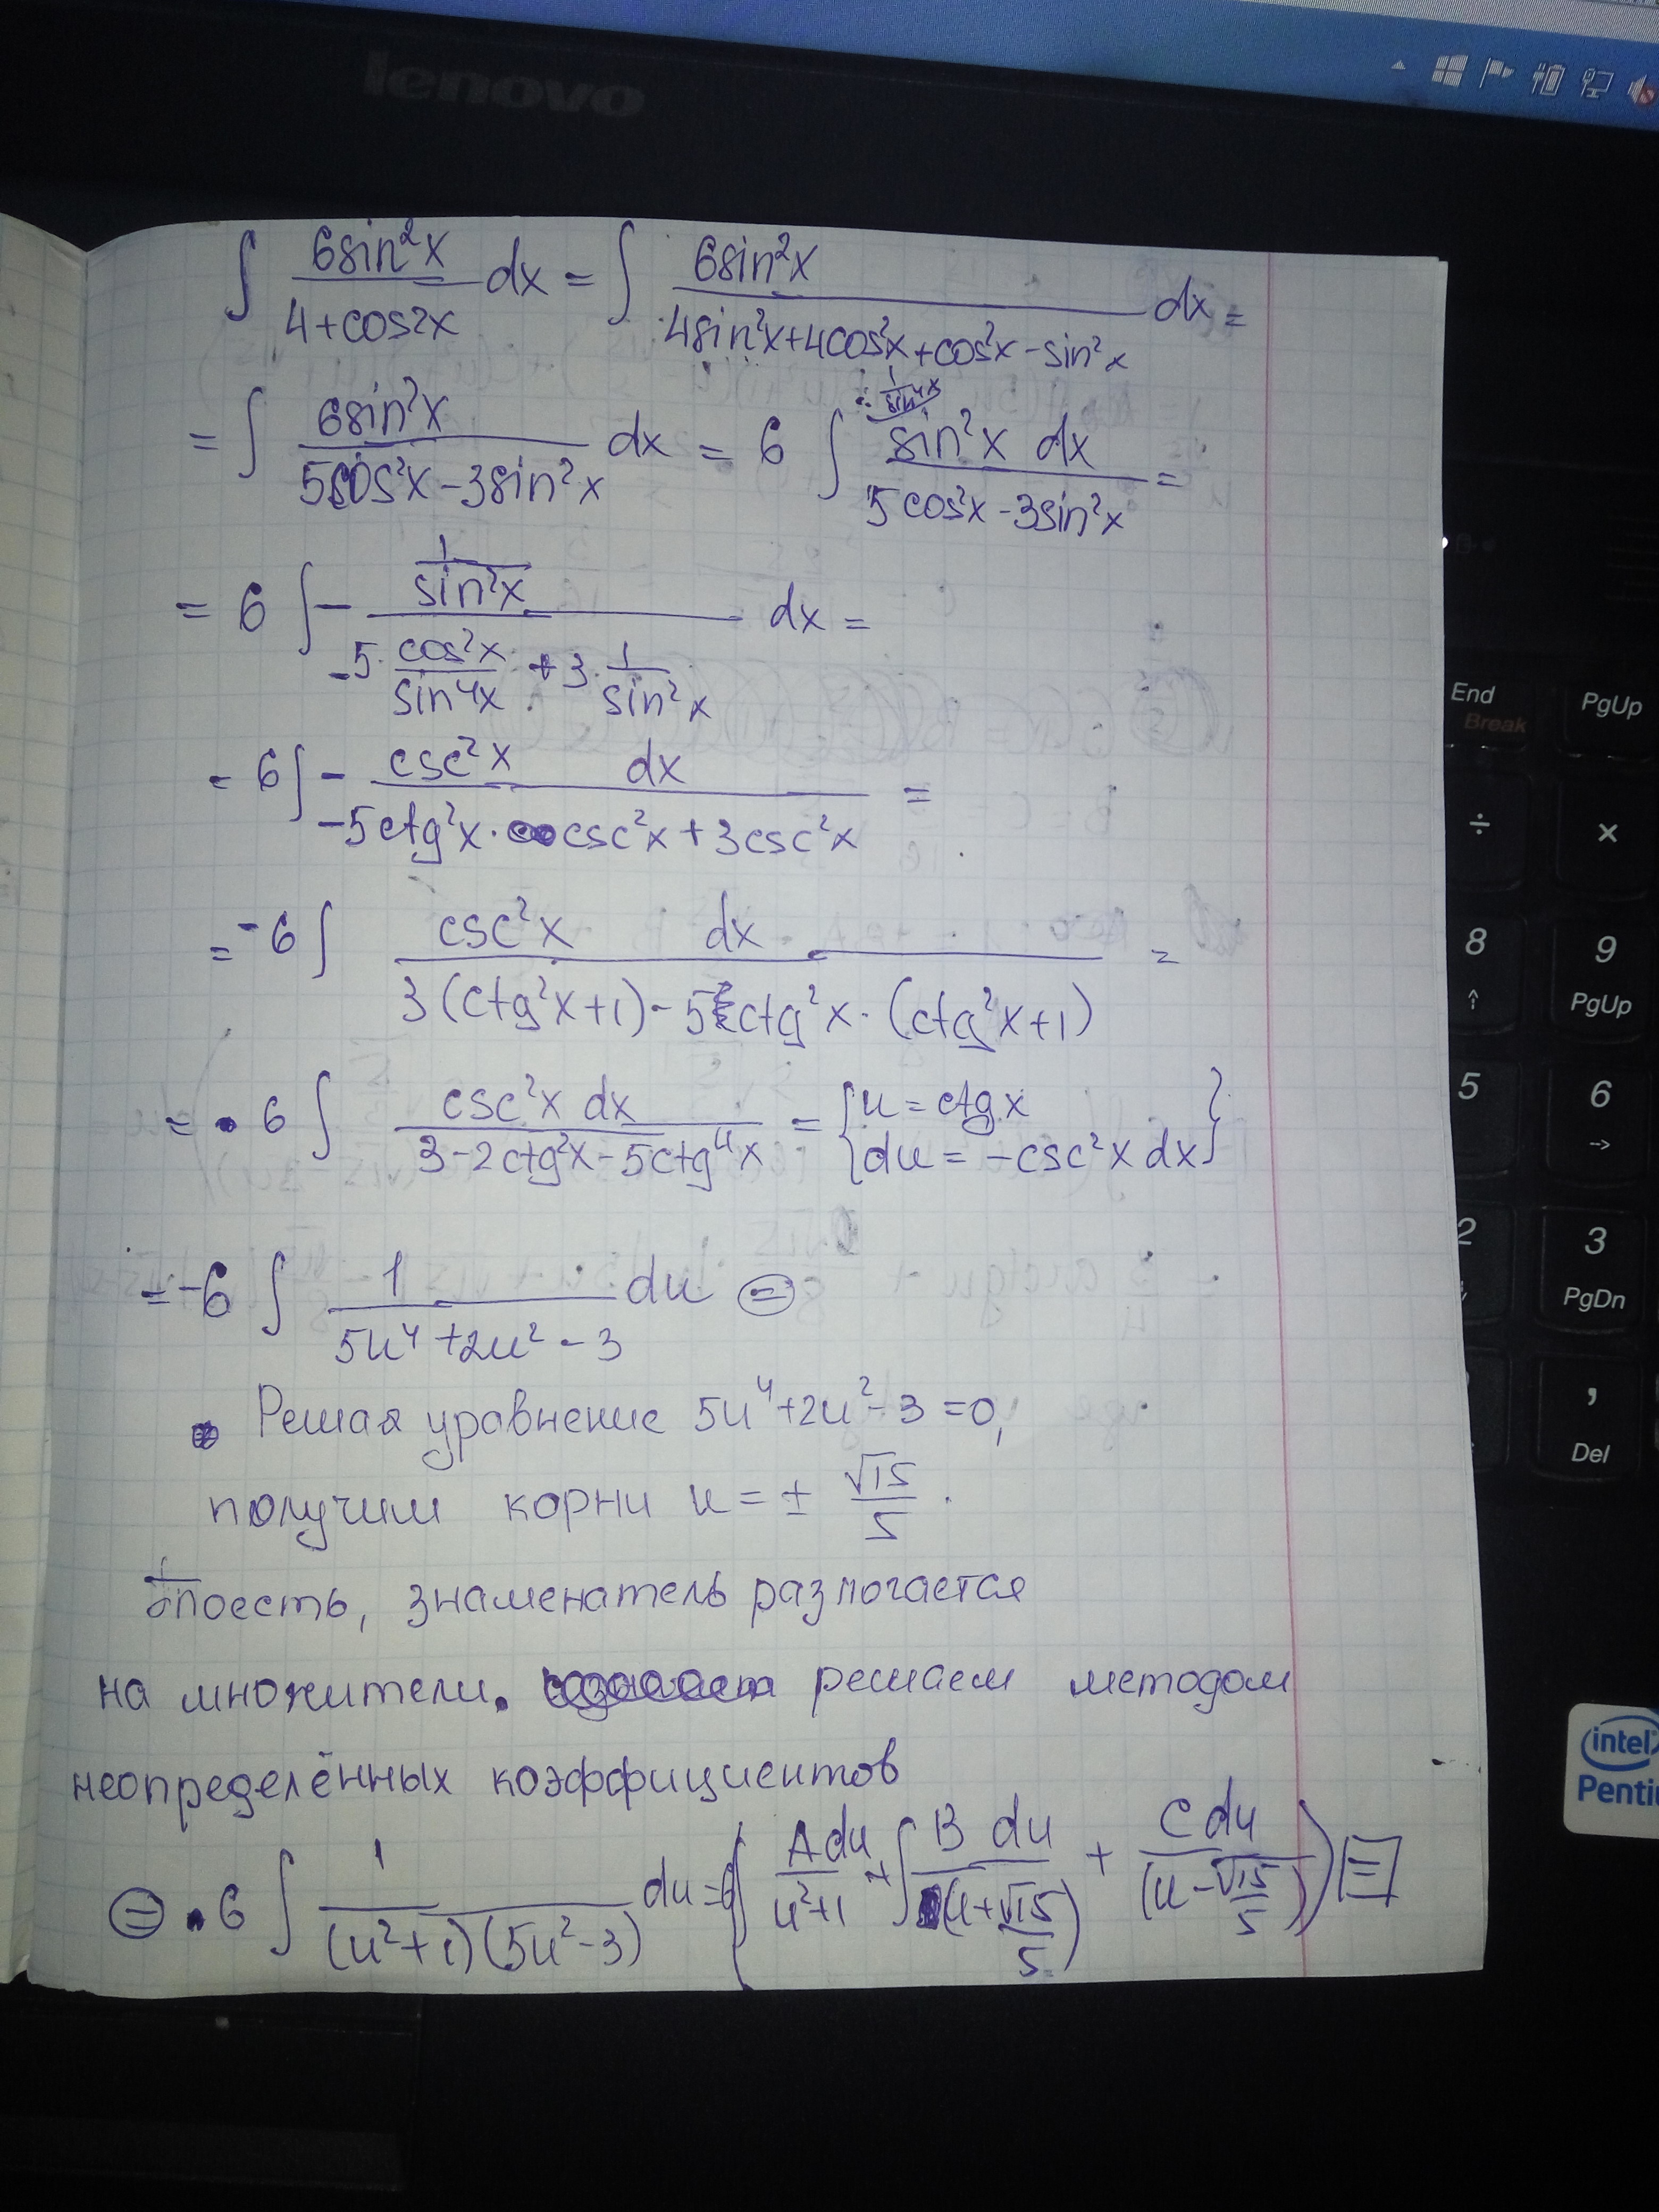 lenovo
∫ 6sin²x / 4+cos2x dx = ∫ 6sin²x / 4sin²x+4cos²x+cos²x-sin²x dx =
= ∫ 6sin²x / 5cos²x-3sin²x dx = 6 ∫ sin²x dx / 5cos²x-3sin²x =
: 1/sin⁴x
= 6 ∫ - 1/sin²x / -5·cos²x/sin⁴x + 3·1/sin²x dx =
= 6 ∫ - csc²x dx / -5ctg²x·csc²x+3csc²x =
= -6 ∫ csc²x dx / 3(ctg²x+1)-5ctg²x·(ctg²x+1) =
= 6 ∫ csc²x dx / 3-2ctg²x-5ctg⁴x = {u=ctgx
du=-csc²x dx}
= -6 ∫ 1 / 5u⁴+2u²-3 du ⊜
Решая уравнение 5u⁴+2u²-3=0,
получим корни u=± √15/5.
То есть, знаменатель разлогается
на множители. решаем методом
неопределённых коэффициентов
⊜ 6 ∫ 1 / (u²+1)(5u²-3) du = 6(∫ A du / u²+1 + ∫ B du / (u+√15/5) + C du / (u-√15/5)) =
End
Break
PgUp
÷
×
8
↑
9
PgUp
5
6
→
2
3
PgDn
,
Del
intel
Penti